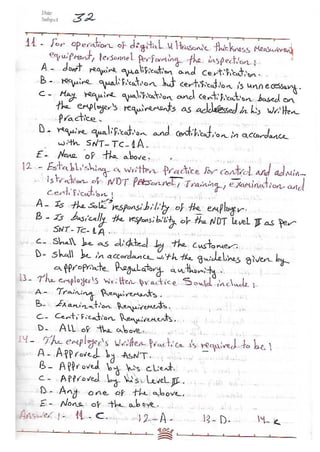 Date:
Subject 32
11- For operation of digital Ultrasonic thickness Measurement
equipment, Personnel performing the inspection:
A- don't require qualification and Certification.
B- require qualification but certification is unnecessary.
C- May require qualification and certification based on
the employer's requirements as addressed in his written
practice.
D- require qualification and certification in accordance
with SNT-TC-1A.
E- None of the above.
12- Establishing a written Practice for control and admin-
istration of NDT Personnel, Training, examination and
certification:
A- Is the Sole responsibility of the employer.
B- Is basically the responsibility of the NDT Level III as per
SNT-TC-1A.
C- Shall be as dictated by the Customer.
D- Shall be in accordance with the guidelines given by
appropriate Regulatory authority.
13- The employer's written practice Sould include:
A- Training Requirements.
B- Examination Requirements.
C- Certification Requirements.
D- All of the above.
14- The employer's written Practice is required to be:
A- Approved by ASNT.
B- Approved by his client.
C- Approved by his Level III.
D- Any one of the above.
E- None of the above.
Answer:- 11-C. 12-A. 13-D. 14-C